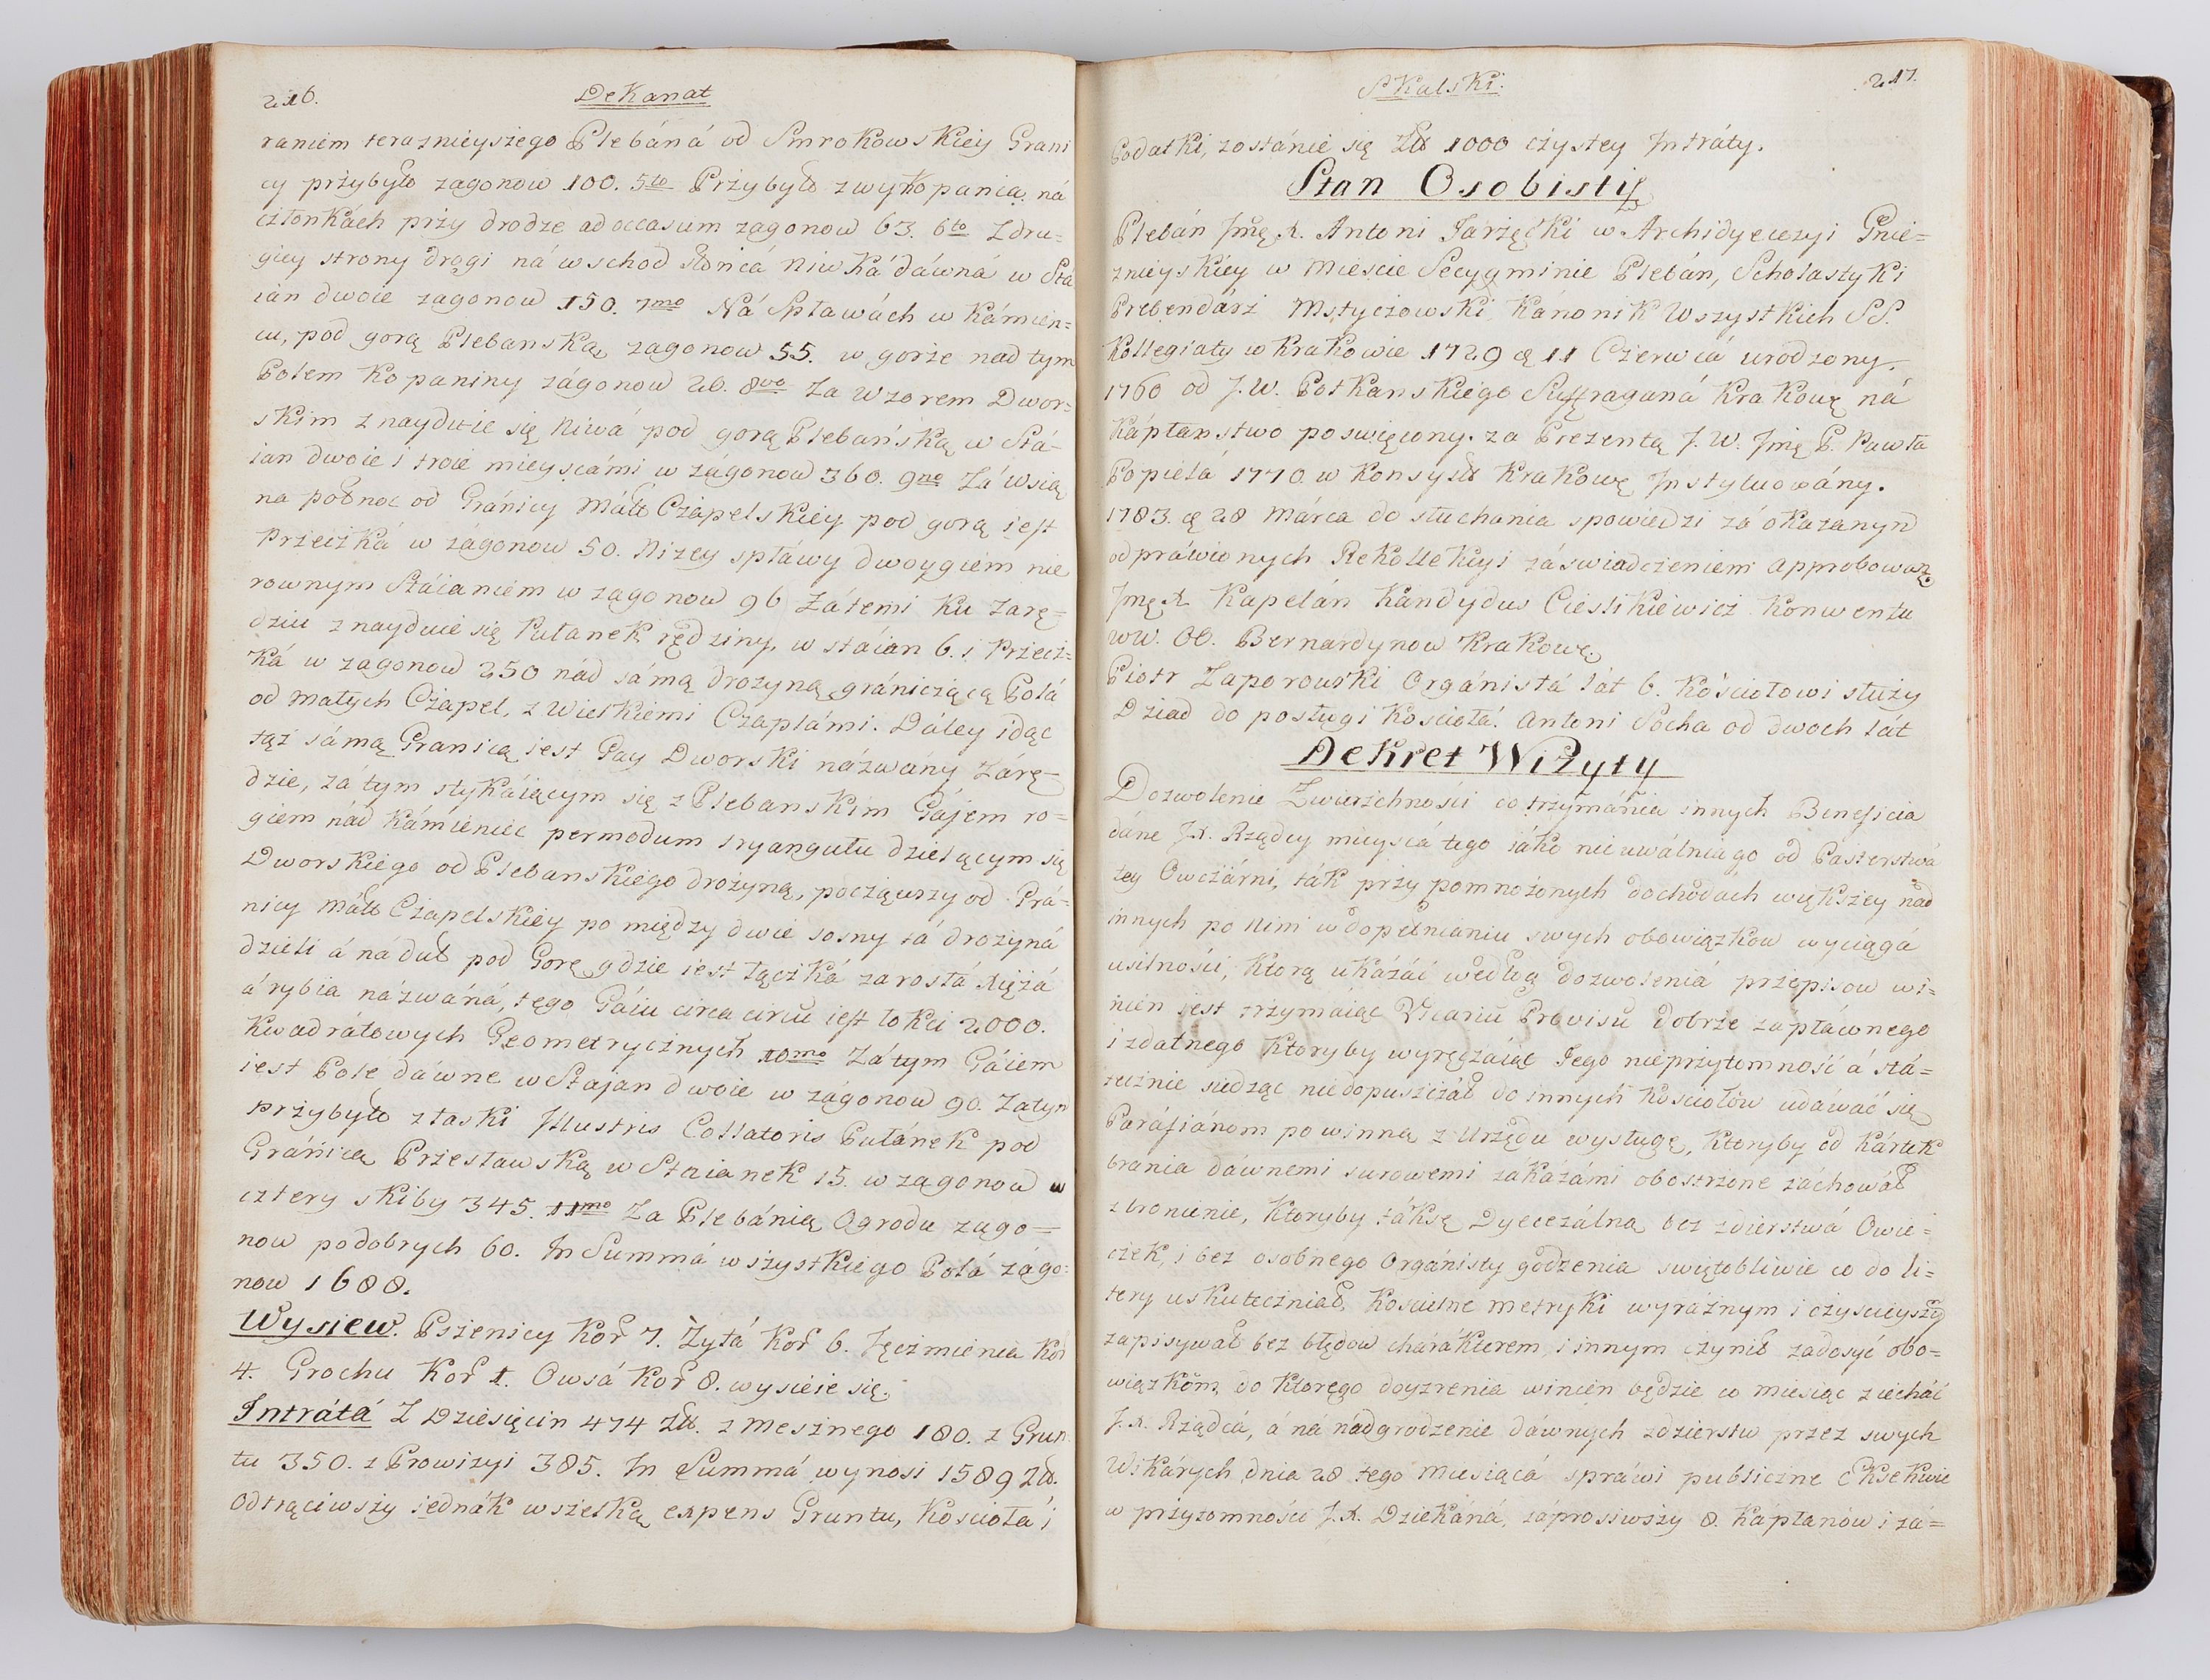 216.
DeKanat
raniem teraznieyszego Plebáná od SmroKowsKiey Grani
cy przybyło zagonow 100. 5to Przybyło z wyKopanią ná
członKách przy drodze ad occasum zagonow 63. 6to Z dru=
giey strony drogi ná wschod słońcá NiwKá dáwná w Stá
ian dwoie zagonow 150. 7mo Ná Spławách w Kámien=
cu, pod gorą PlebansKą zagonow 55. w gorze nad tym
Polem Kopaniny zágonow 26. 8vo Za Wzorem Dwor=
sKim znayduie się Niwá pod gorą PlebańsKą w Stá-
ian dwoie i troie mieyscámi w zágonow 360. 9no Zá Wsią
na połnoc od Gránicy Máłł CzapelsKiey pod gorą iest
PrzeczKá w zágonow 50. Nizey spłáwy dwoygiem nie
rownym Stáianiem w zagonow 96 Zátemi Ku Zarę-
dziu znayduie się PułaneK rędziny, w stáian 6. i Przecz=
Ká w zagonow 250 nád sámą drozyną gránicząCą Polá
od małych Czapel, z WielKiemi Czaplámi. Dáley idąc
tąż sámą Granicą iest Gay DworsKi názwány Zárę-
dzie, zá tym stykáiącym się z PlebansKim Gájem ro=
giem nád Kámieniec per modum tryangułu dzielącym się
DworsKiego od PlebansKiego drożyną, począwszy od Grá=
nicy Máłł CzapelsKiey po między dwie sosny tá drożyná
dzieli á ná duł pod Gorę gdzie iest łączKá zarosłá Xiężá
á rybia názwáná, tego Gáiu circa circu iest łoKci 2000.
Kwadrátowych Geometrycznych 10mo Zá tym Gáiem
iest Pole dáwne w Stajan dwoie w zágonow 90. Zatym
przybyło z łasKi Illustris Collatoris PułáneK pod
Gránicą PrzesławsKą w StaianeK 15. w zagonow w
cztery sKiby 345. 11mo Za Plebánią Ogrodu zágo=
now podobrych 60. In Summá wszystKiego Polá zágo=
now 1688.
Wysiew. Pszenicy Kor 7. Żytá Kor 6. Jęczmienia Kor
4. Grochu Kor 1. Owsá Kor 8. wysieie się.
Intrátá Z Dziesięcin 474 Zł. z mesznego 180. z Grun
tu 350. z Prowizyi 385. In Summá wynosi 1589 Zł.
Odtrąciwszy iednáK wszelKą expens Gruntu, Kościołá i
SKalsKi.
217.
PodatKi, zostánie się Złł 1000 czystey Intráty.
Stan Osobisty
Plebán Jmę X. Antoni JarzęcKi w Archidyecezyi Gnie=
znieysKiey w Mieście Secygminie Plebán, ScholastyKi
Prebendárz MstyczowsKi KánoniK WszystKich SS.
Kollegiaty w KraKowie 1729 ą 11 Czerwcá urodzony.
1760 od J. W. PotKansKiego Suffraganá KraKowę ná
Kápłanstwo poswięcony. za Prezentą J. W. Jmę P. Pawła
Popielá 1770. w Konsyst KraKowę Instytuowány.
1783. ą 28 Márca do słuchania spowiedzi zá oKazanym
odpráwionych ReKolleKcyi záswiadczeniem approbowany
Jmę X. Kapelán Kándydus CieslKiewicz Konwentu
WW. OO. Bernardynow KraKowę
Piotr ZaporowsKi Orgánistá lát 6. Kościołowi służy
Dziad do posługi Kościołá. Antoni Socha od dwoch lát
DeKret WiZyty
Dozwolenie Zwierzchności do trzymánia innych Beneficia
dáne J.X. Rządcy mieyscá tego iáKo nie uwálnia go od Pasterstwá
tey Owczárni, táK przy pomnożonych dochodách więKszey nád
innych po Nim w dopełnianiu swych obowiązKow wyciągá
usilności, Którą uKázáć wedlug dozwolenia przepisow wi=
nien iest trzymáiąc Vicariu Provisu dobrze zapłáwnego
i zdatnego Ktoryby wyręczáiąc Jego nieprzytomność á stá=
tecznie siedząc niedopuszczáł do innych Kościołów udáwáć się
Paráfiánom powinną z Urzędu wysługę, Ktoryby od KárteK
brania dáwnemi surowemi záKázámi obostrzone záchowáł
zbronienie, Ktoryby táKsę Dyecezálną bez zdierstwá Owie=
czeK, i bez osobnego Orgánisty godzenia swiątobliwie co do li=
tery usKuteczniał, Kościelne metryKi wyráźnym i czyscieyszy
zapisywał bez błędow charáKterem, i innym czynił zadosyć obo=
wiązKom, do Ktorego doyzrenia winien będzie co miesiąc ziecháć
J.X. Rządcá, á ná nádgrodzenie dáwnych zdzierstw przez swych
WiKárych dnia 28 tego miesiącá spráwi publiczne EKseKwie
w przytomności J.X. DzieKáná, záprosiwszy 8. Kápłanów i zá=